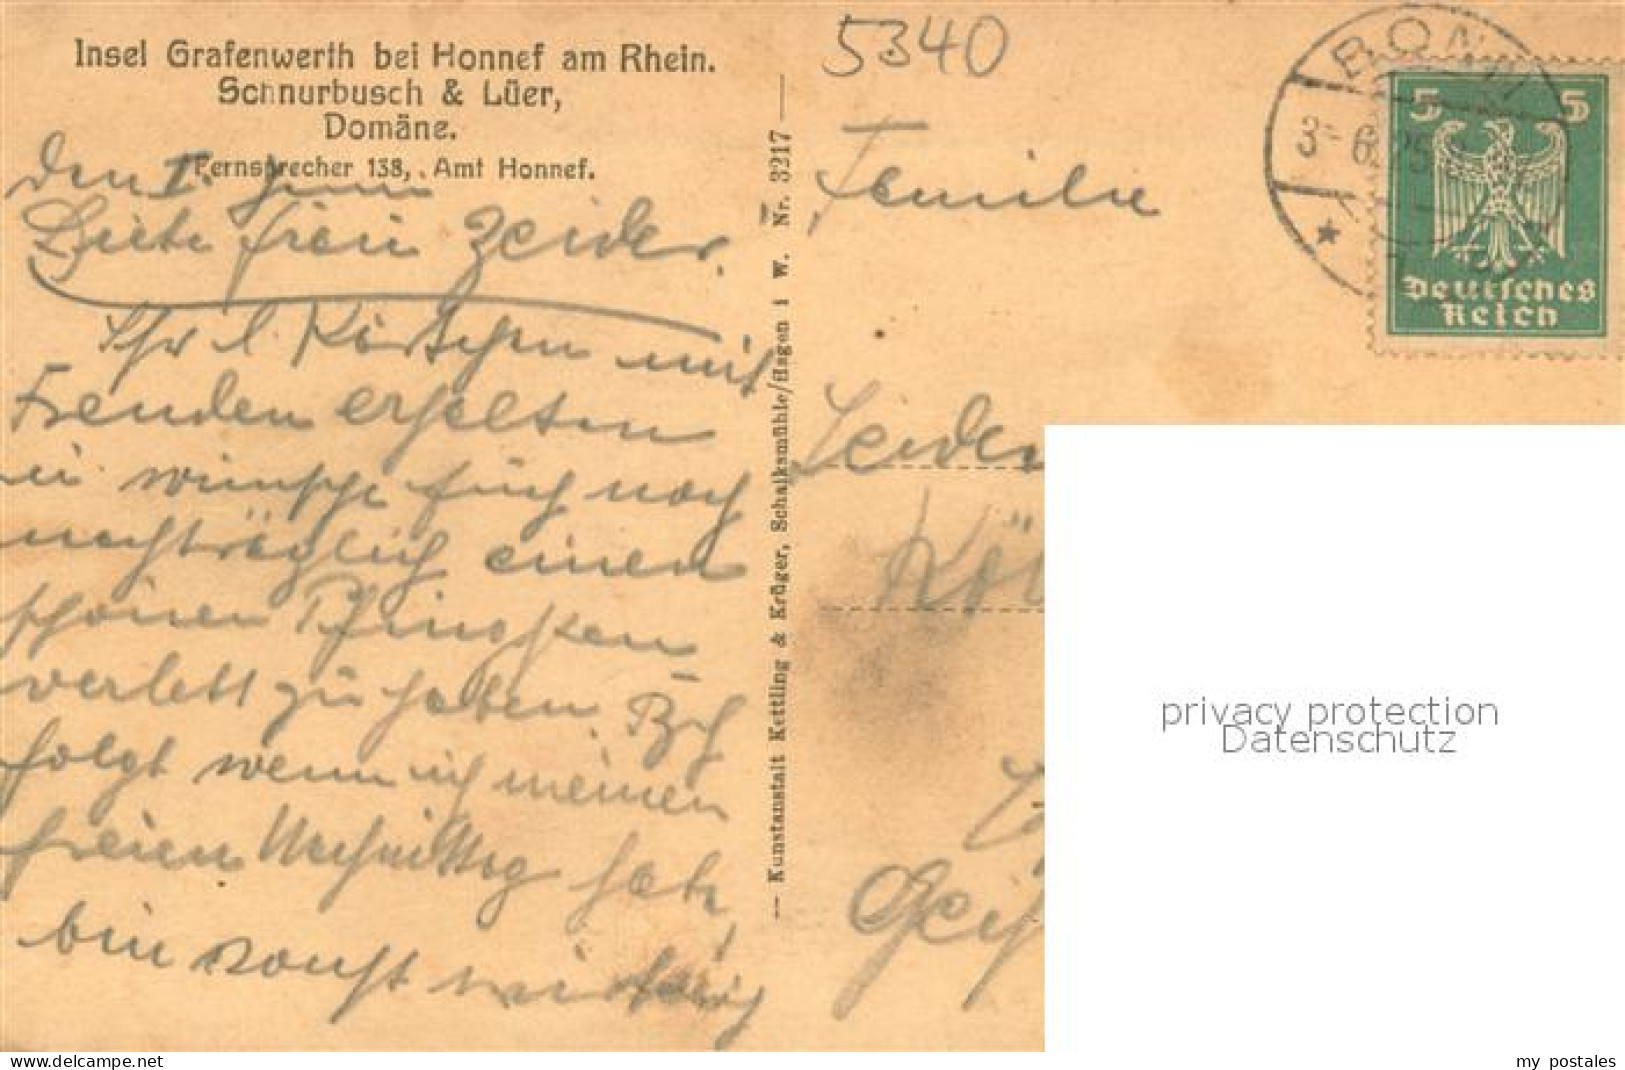 Insel Grafenwerth bei Honnef am Rhein.
Schnurbusch & Lüer,
Domäne.
Fernsprecher 138, Amt Honnef.
den I. Juni
Liebe frau Zeider.
Ihr l. Kärtchen mit
Freuden erhalten
wünsche Euch noch
nachträglich einen
schönen Pfingsten
verlebt zu haben. Brf
folgt wenn ich meinen
freien Nachmittag habe,
bin sonst
— Kunstanstalt Kettling & Krüger, Schalksmühle/Hagen i W. Nr. 3217 —
5340
Familie
Zeider
Kö
BONN
3 6 25
5 5
Deutsches
Reich
privacy protection
Datenschutz
www.delcampe.net
my_postales